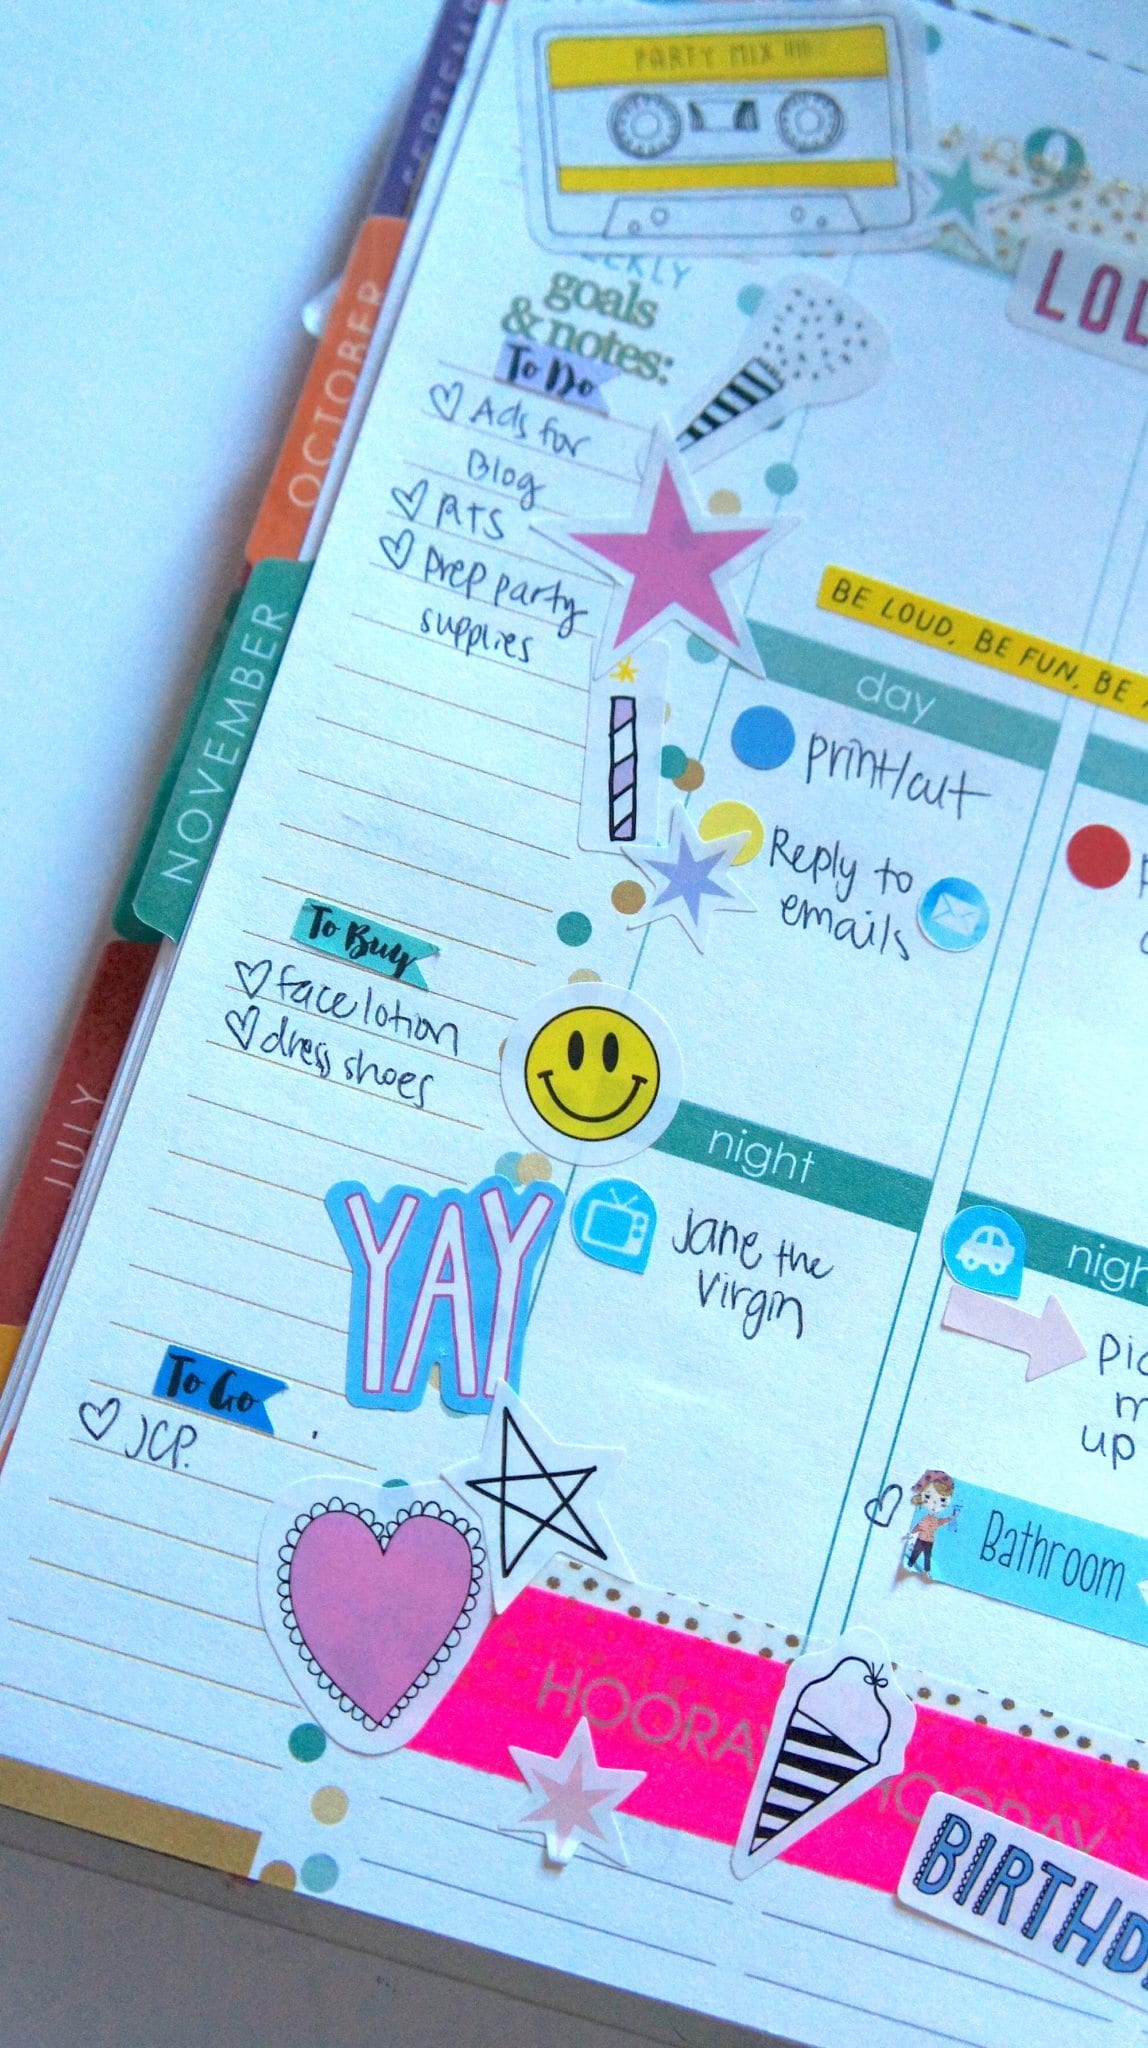 PARTY MIX
9
LOL
goals
& notes:
To Do
Ads for
Blog
RTS
prep party
supplies
To Buy
face lotion
dress shoes
YAY
To Go
JCP.
BE LOUD, BE FUN, BE
day
print/cut
Reply to
emails
night
Jane the
Virgin
up
Bathroom
HOORAY HOORAY
OCTOBER
NOVEMBER
JULY